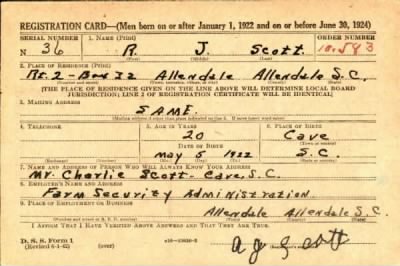 REGISTRATION CARD—(Men born on or after January 1, 1922 and on or before June 30, 1924)
SERIAL NUMBER 1. NAME (Print) ORDER NUMBER
N 36 R. J. Scott
(First) (Middle) (Last)
2. PLACE OF RESIDENCE (Print)
Rt. 2 - Box 32 Allendale Allendale S.C.
[THE PLACE OF RESIDENCE GIVEN ON THE LINE ABOVE WILL DETERMINE LOCAL BOARD
JURISDICTION; LINE 2 OF REGISTRATION CERTIFICATE WILL BE IDENTICAL]
3. MAILING ADDRESS
SAME.
[Mailing address if other than place indicated on line 2. If same insert word same]
4. TELEPHONE 5. AGE IN YEARS 6. PLACE OF BIRTH
20 Cave
DATE OF BIRTH
May 5 1922 S.C.
7. NAME AND ADDRESS OF PERSON WHO WILL ALWAYS KNOW YOUR ADDRESS
Mr. Charlie Scott - Cave, S.C.
8. EMPLOYER'S NAME AND ADDRESS
Farm Security Administration
9. PLACE OF EMPLOYMENT OR BUSINESS
Allendale Allendale S.C.
I AFFIRM THAT I HAVE VERIFIED ABOVE ANSWERS AND THAT THEY ARE TRUE.
D. S. S. Form 1
(Revised 6-1-42) (over)